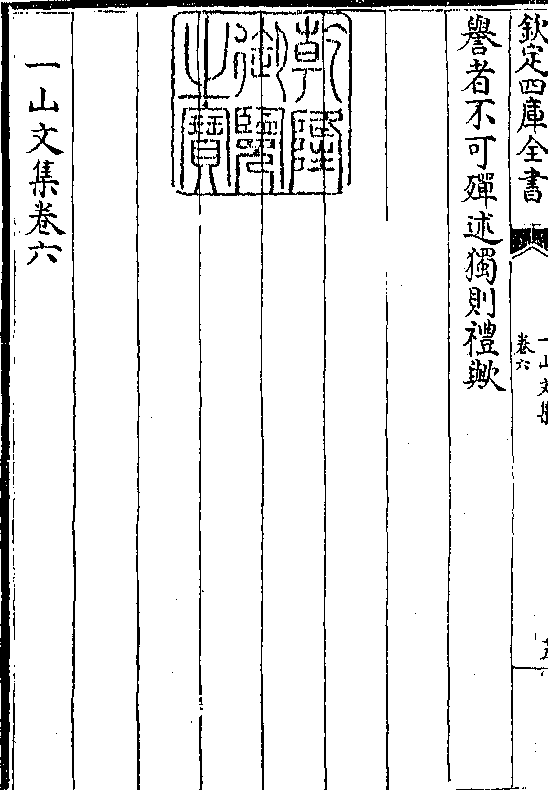 欽定四庫全書
一山文集
卷六
譽者不可殫述獨則禮歟
乾隆御覽之寶
一山文集卷六